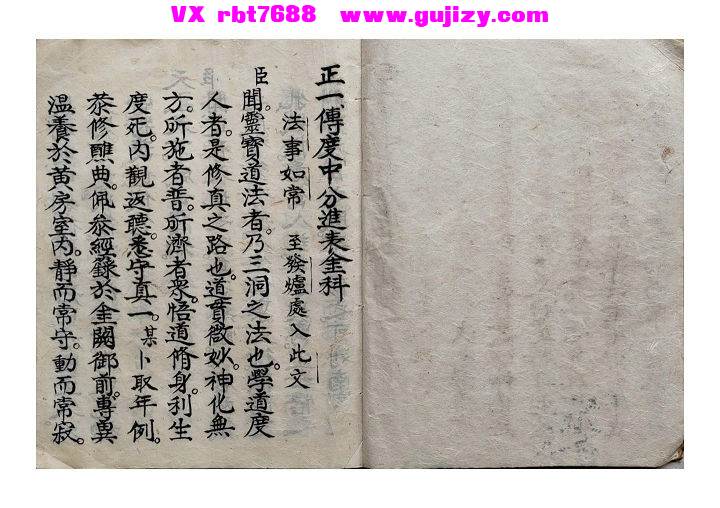 VX rbt7688 www.gujizy.com
正一傳度中分進表全科
法事如常 至發爐處入此文
臣聞。靈寶道法者。乃三洞之法也。學道度
人者。是修真之路也。道貫微妙。神化無
方。所施者普。所濟者衆。悟道脩身利生
度死。内觀返聽。悉守真一。某卜取年例。
恭修醮典。佩參經籙於金闕御前。專異
溫養於黄房室内。靜而常守。動而常寂。